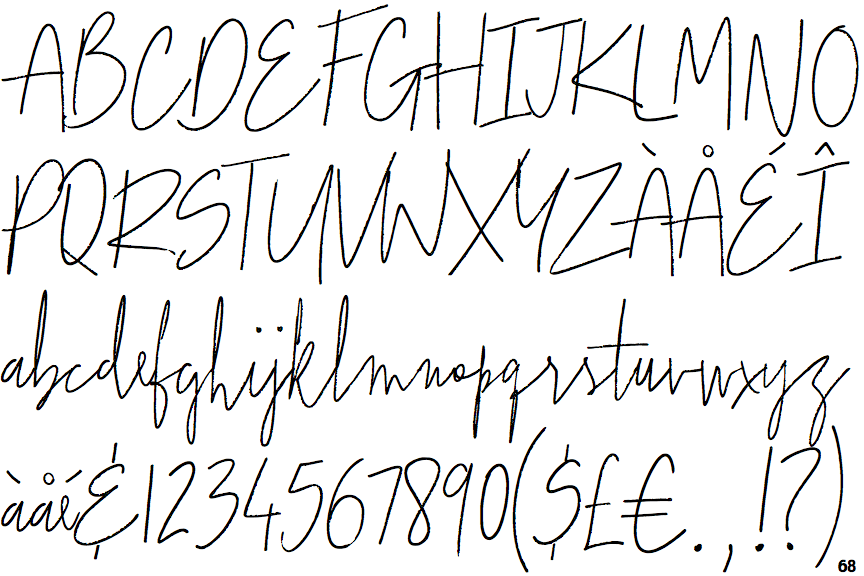 ABCDEFGHIJKLMNO
PQRSTUVWXYZÀÅÉÎ
abcdefghijklmnopqrstuvwxyz
àåé&1234567890($£€.,!?)
68